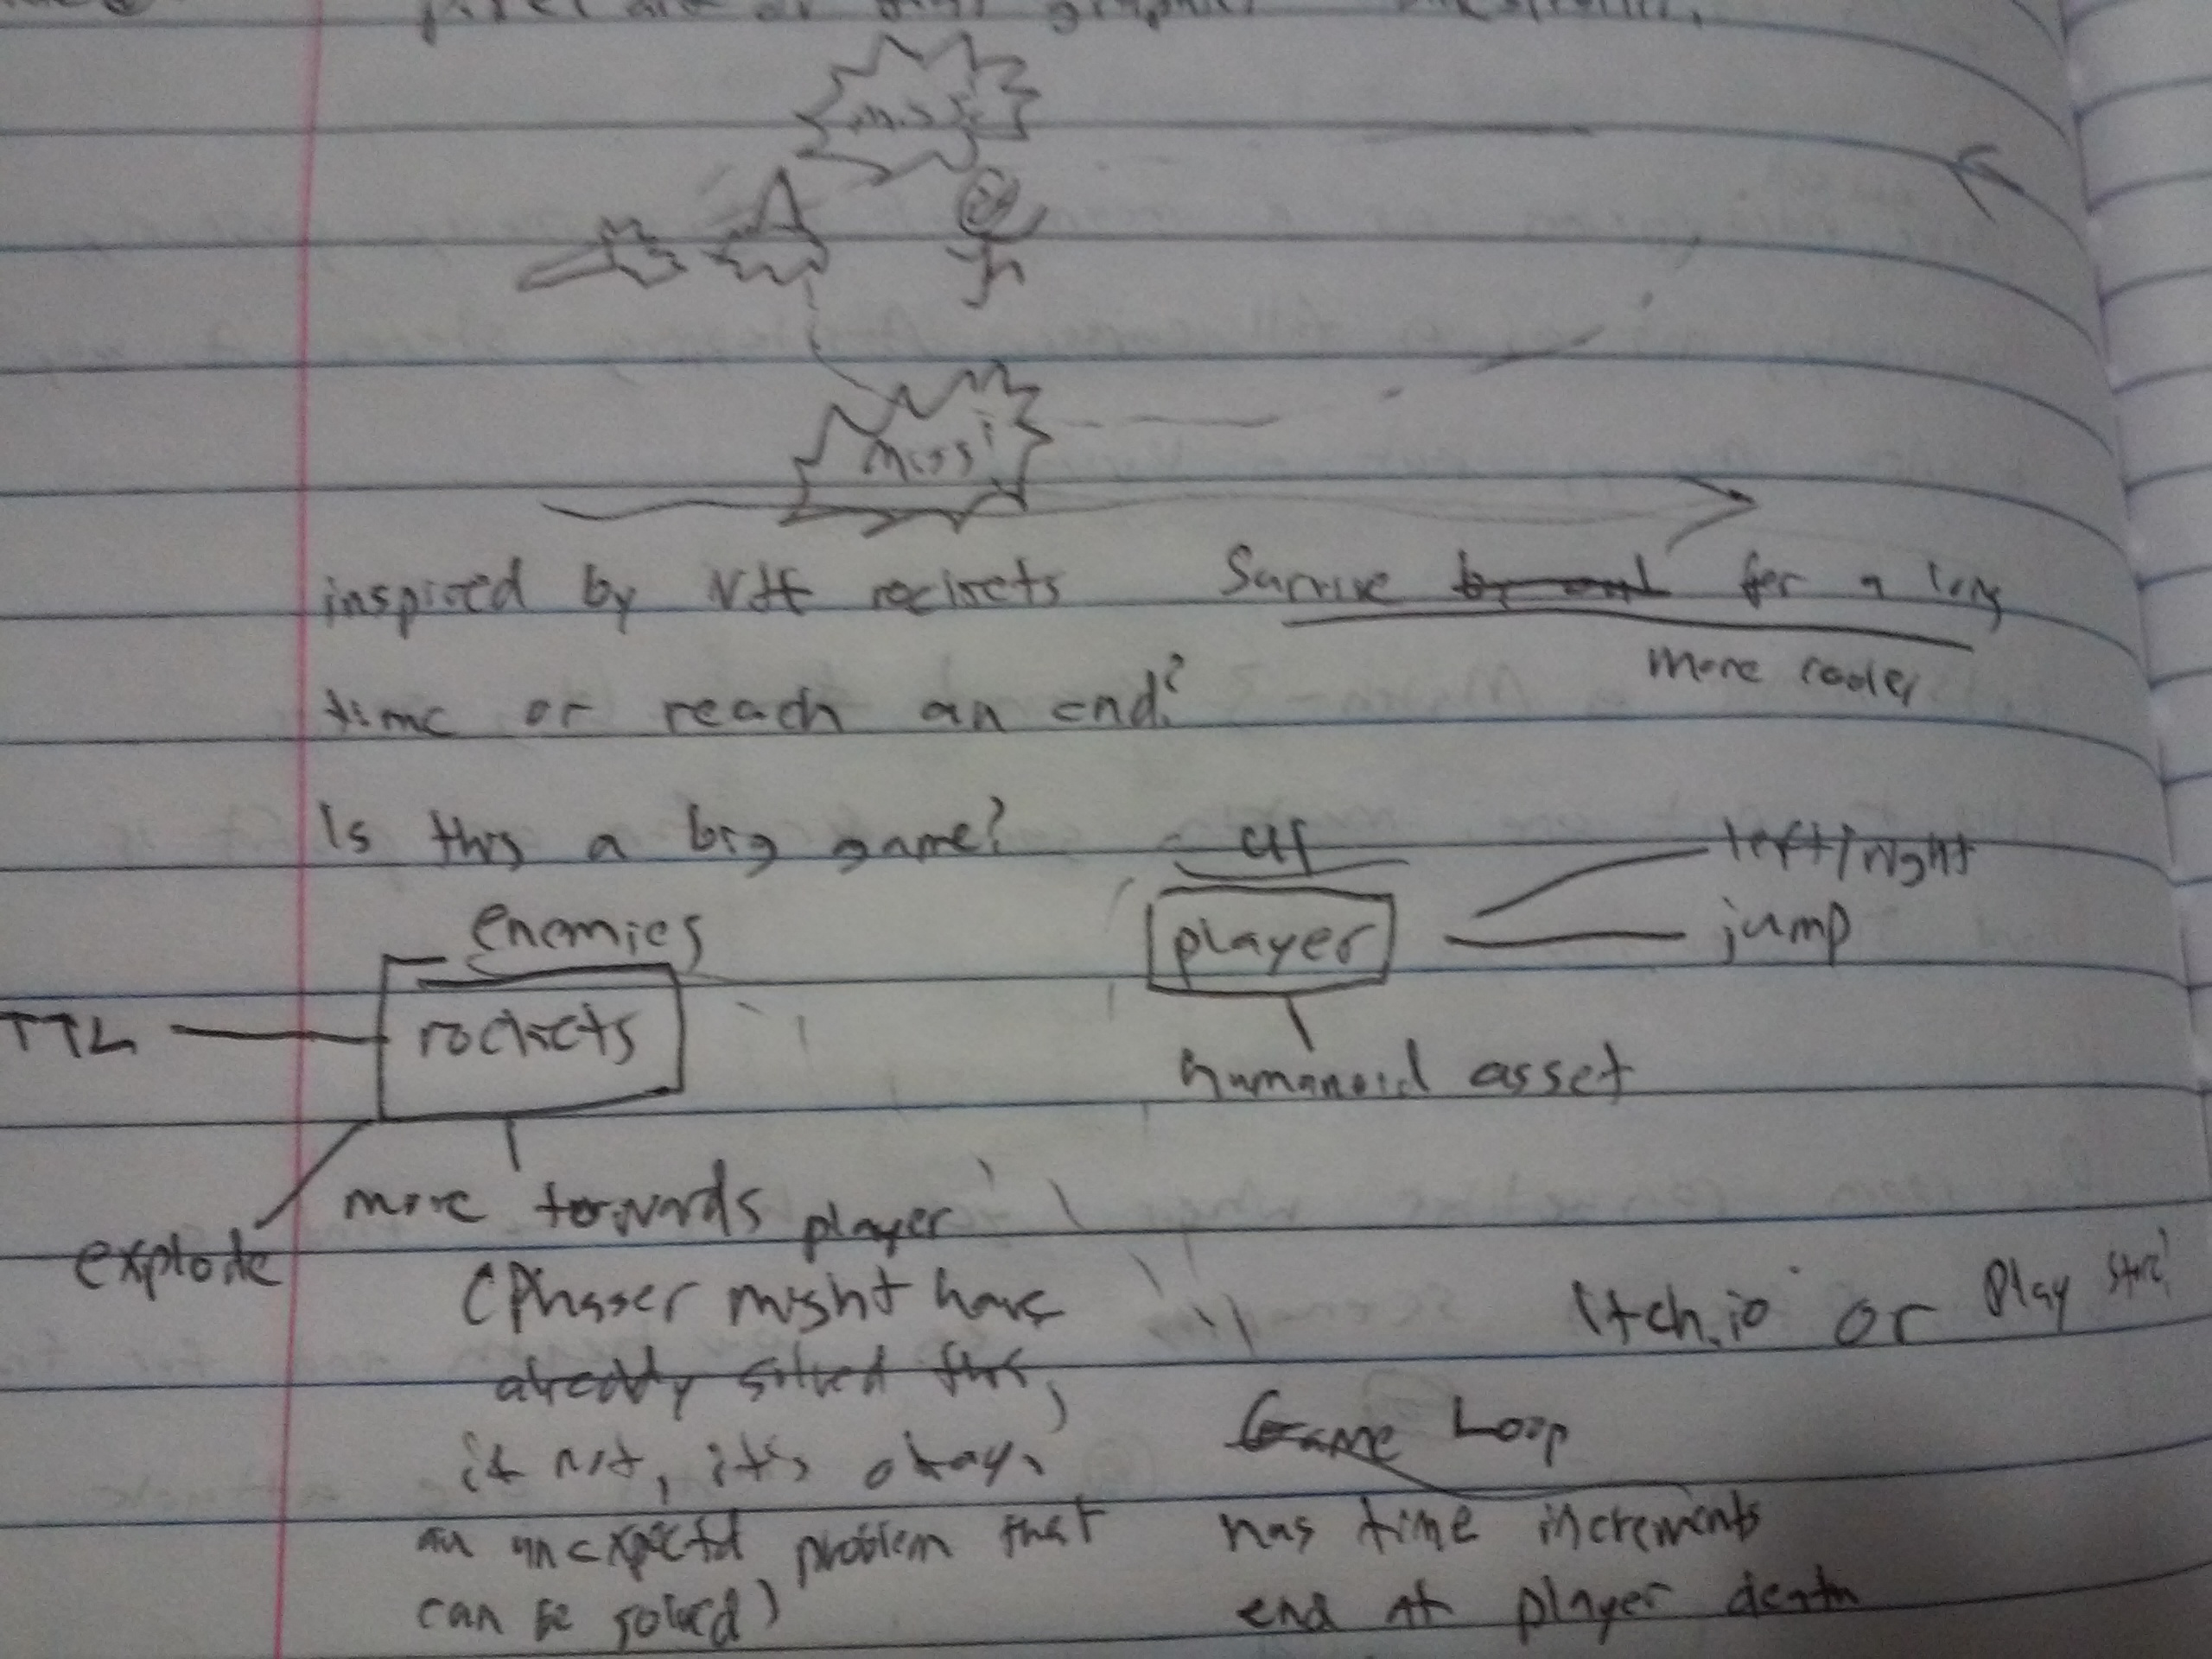 pixel art or
graphics
miss
miss
inspired by rockets Survive for a long
more cooler
time or reach an end?
Is this a big game?
left/right
enemies
player
jump
TTL
rockets
humanoid asset
move towards player
explode
(Phaser might have
already solved this,
if not, it's okay,
an unexpected problem that
can be solved)
Itch.io or Play Store?
Game Loop
has time increments
end at player death